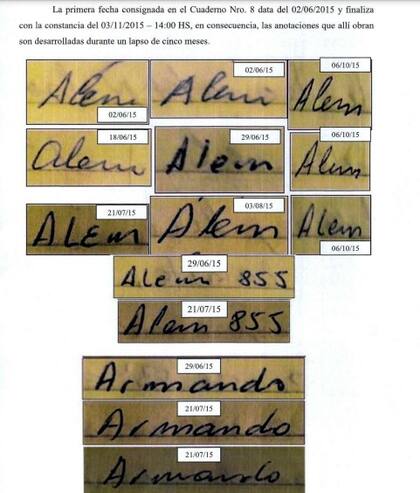 La primera fecha consignada en el Cuaderno Nro. 8 data del 02/06/2015 y finaliza
con la constancia del 03/11/2015 – 14:00 HS, en consecuencia, las anotaciones que allí obran
son desarrolladas durante un lapso de cinco meses.
Alem
02/06/15
02/06/15
Alem
06/10/15
Alem
Alem
18/06/15
29/06/15
Alem
06/10/15
Alem
21/07/15
ALEM
03/08/15
Alem
Alem
06/10/15
29/06/15
Alem 855
21/07/15
Alem 855
29/06/15
Armando
21/07/15
Armando
21/07/15
Armando